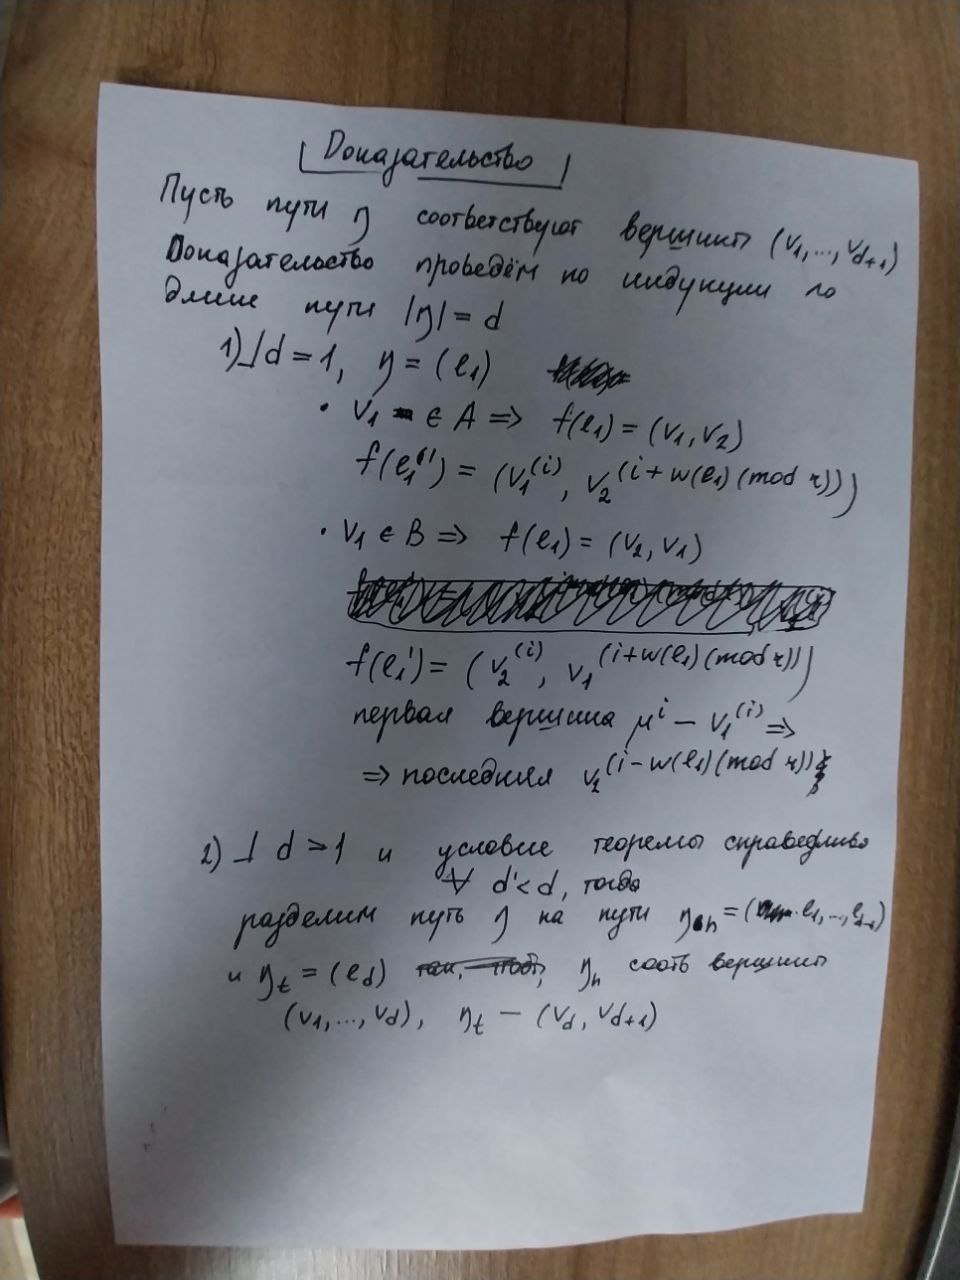 Доказательство
Пусть пути η соответствуют вершины (v₁,...,v_{d+1})
Доказательство проведём по индукции по
длине пути |η| = d
1) ⊥ d = 1, η = (e₁)
• v₁ ∈ A ⇒ f(e₁) = (v₁, v₂)
f(e₁') = (v₁^{(i)}, v₂^{(i+w(e₁)(mod r))})
• v₁ ∈ B ⇒ f(e₁) = (v₂, v₁)
f(e₁') = (v₂^{(i)}, v₁^{(i+w(e₁)(mod r))})
первая вершина μ^i – v₁^{(i)} ⇒
⇒ последняя v₂^{(i-w(e₁)(mod r))}
2) ⊥ d > 1 и условие теоремы справедливо
∀ d' < d, тогда
разделим путь η на пути η_h = (e₁,...,e_{d-1})
и η_t = (e_d) η_h соотв вершины
(v₁,...,v_d), η_t – (v_d, v_{d+1})